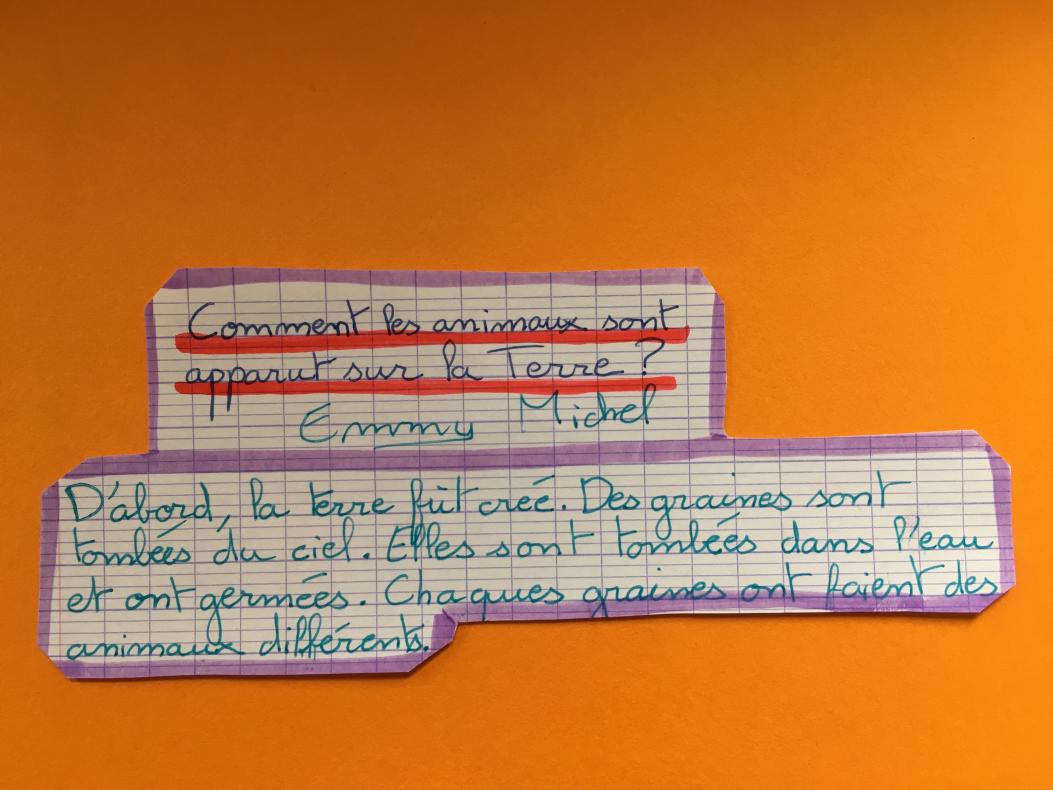 Comment les animaux sont
apparut sur la Terre ?
Emmy Michel
D'abord, la terre fût creé. Des graines sont
tombées du ciel. Elles sont tombées dans l'eau
et ont germées. Chaques graines ont faient des
animaux différents.